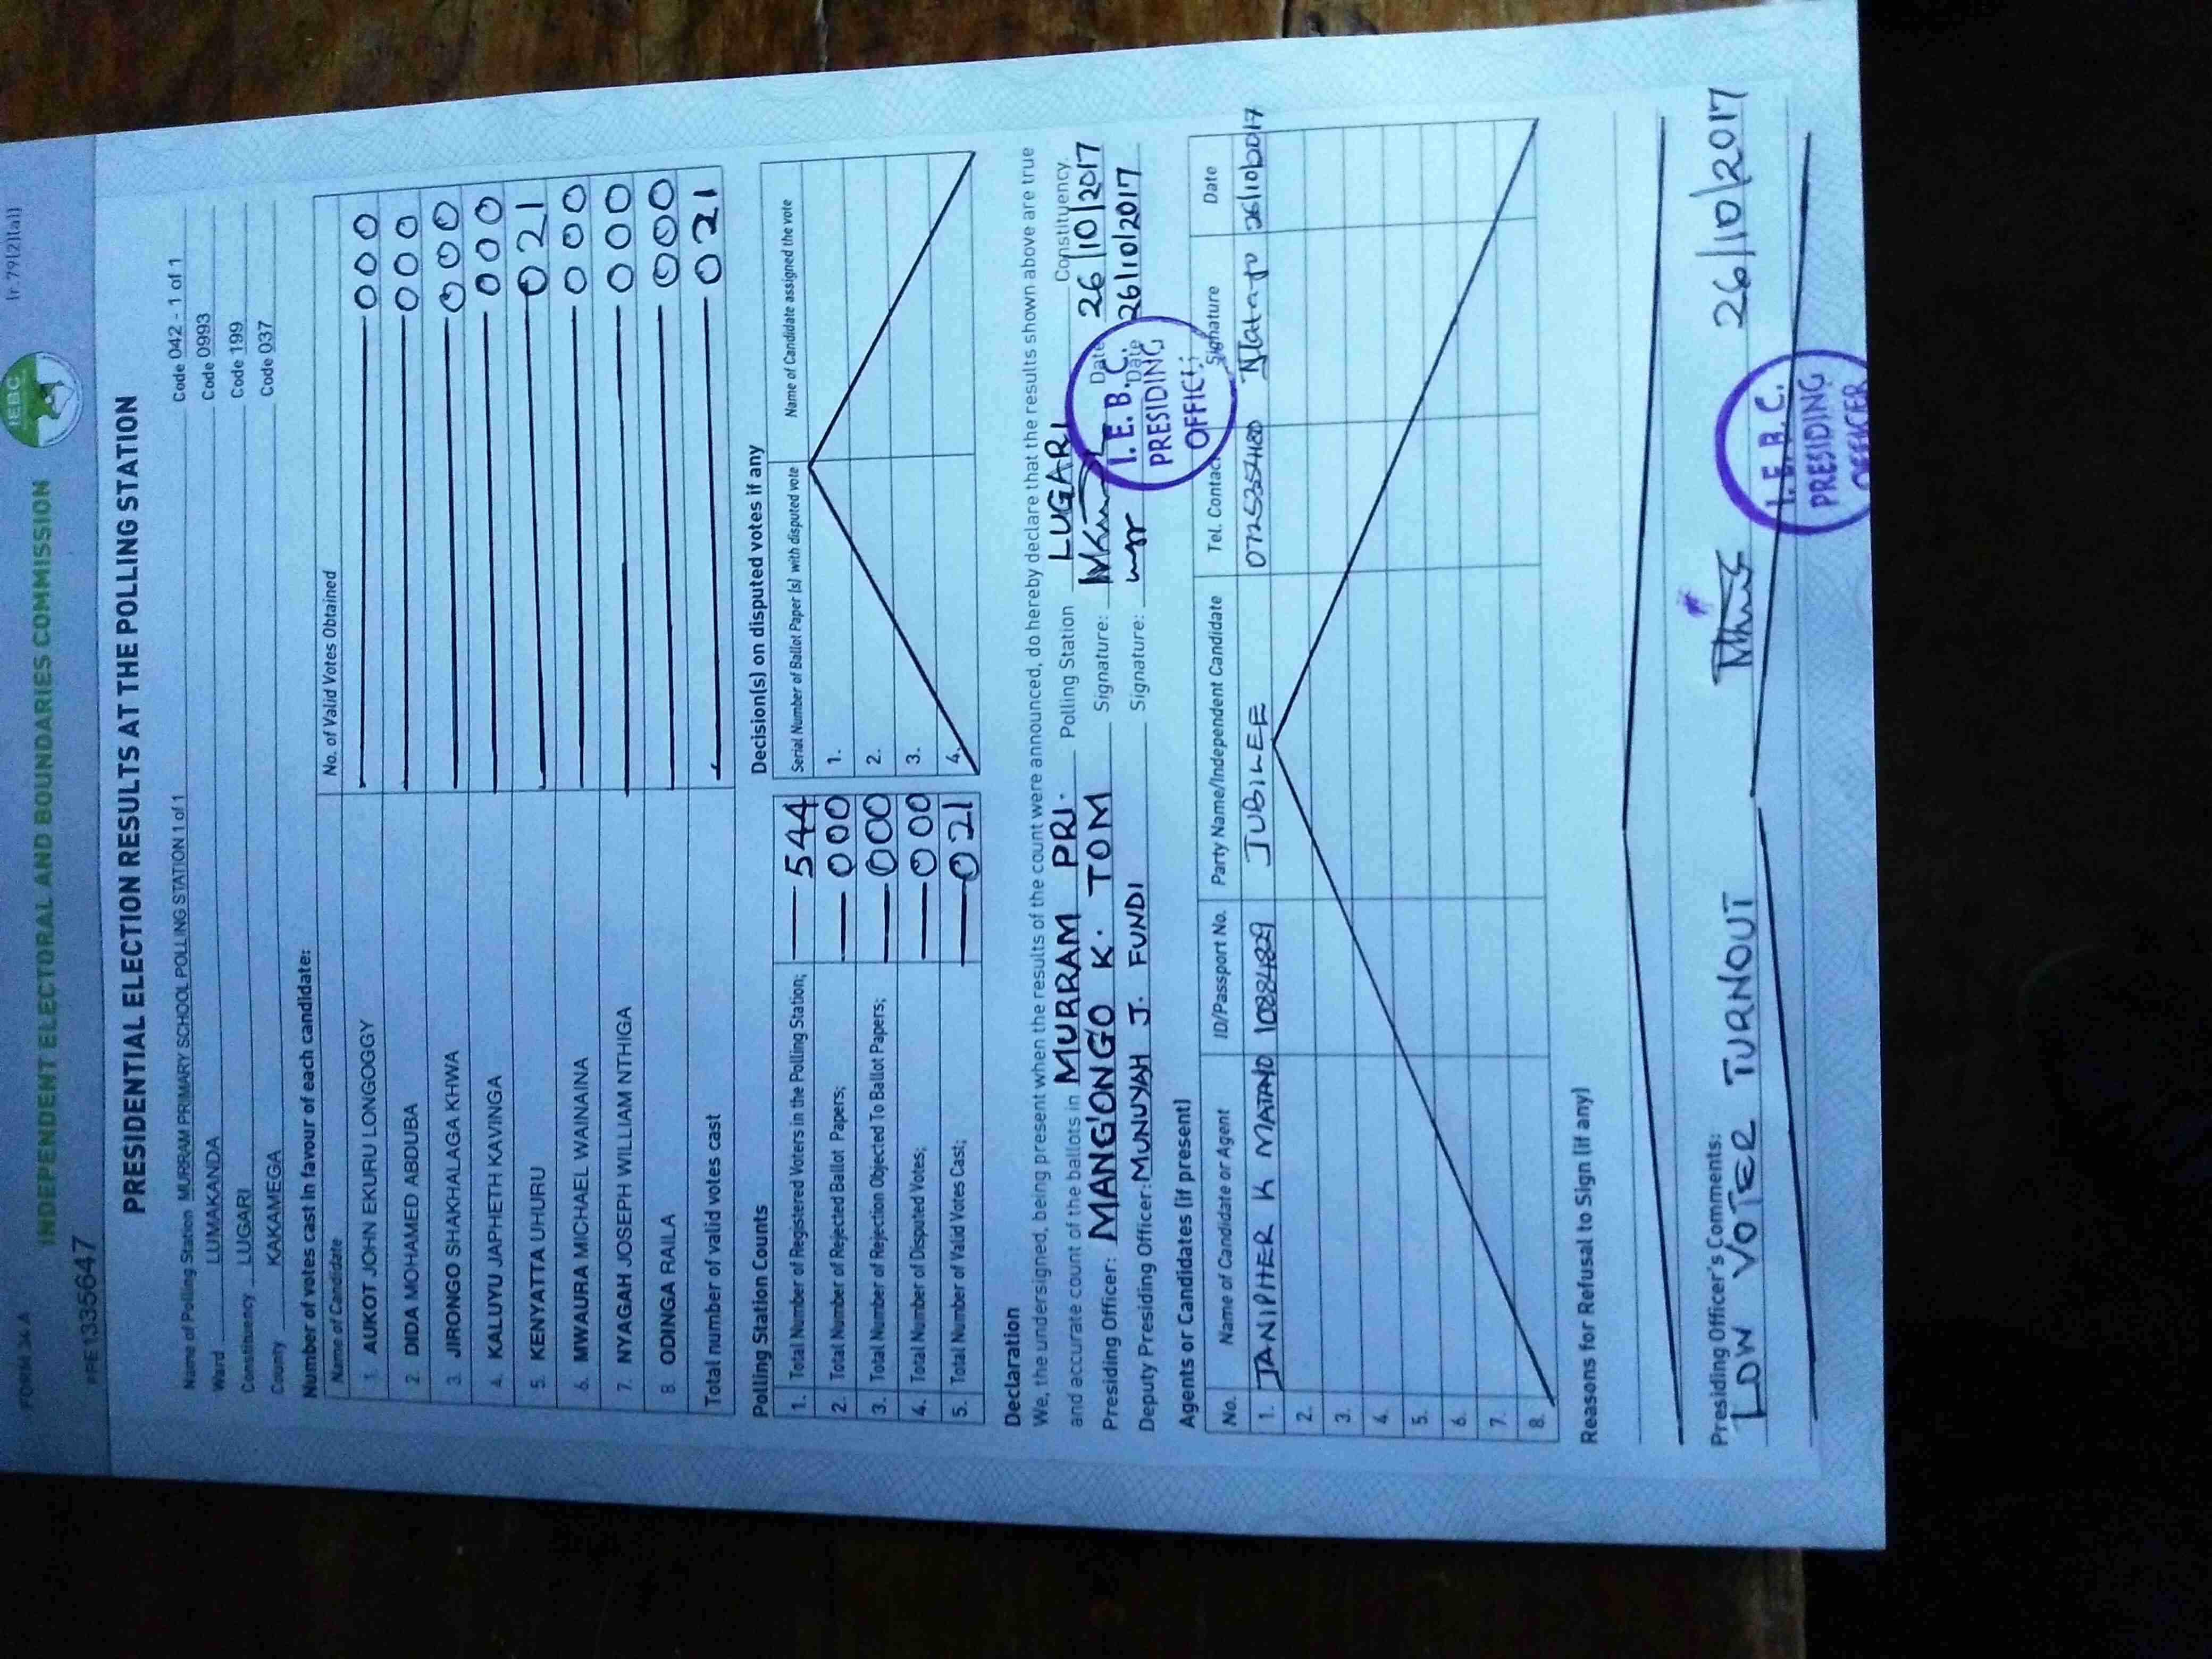 FORM 34 A (r.79(2)(a))
INDEPENDENT ELECTORAL AND BOUNDARIES COMMISSION IEBC
PRESIDENTIAL ELECTION RESULTS AT THE POLLING STATION
Name of Polling Station MURRAM PRIMARY SCHOOL POLLING STATION 1 of 1 Code 042 - 1 of 1
Ward LUMAKANDA Code 0993
Constituency LUGARI Code 199
County KAKAMEGA Code 037
Number of votes cast in favour of each candidate:
Name of Candidate No. of Valid Votes Obtained
1. AUKOT JOHN EKURU LONGOGGY 000
2. DIDA MOHAMED ABDUBA 000
3. JIRONGO SHAKHALAGA KHWA 000
4. KALUYU JAPHETH KAVINGA 000
5. KENYATTA UHURU 021
6. MWAURA MICHAEL WAINAINA 000
7. NYAGAH JOSEPH WILLIAM NTHIGA 000
8. ODINGA RAILA 000
Total number of valid votes cast 021
Polling Station Counts
1. Total Number of Registered Voters in the Polling Station; 544
2. Total Number of Rejected Ballot Papers; 000
3. Total Number of Rejection Objected To Ballot Papers; 000
4. Total Number of Disputed Votes; 000
5. Total Number of Valid Votes Cast; 021
Decision(s) on disputed votes if any
Serial Number of Ballot Paper (s) with disputed vote Name of Candidate assigned the vote
1.
2.
3.
4.
Declaration
We, the undersigned, being present when the results of the count were announced, do hereby declare that the results shown above are true
and accurate count of the ballots in MURRAM PRI. Polling Station LUGARI Constituency.
Presiding Officer: MANG'ONGO K. TOM Signature: Date 26/10/2017
Deputy Presiding Officer: MUNUYAH J. FUNDI Signature: Date 26/10/2017
I.E.B.C.
PRESIDING
Agents or Candidates (if present)
No. Name of Candidate or Agent ID/Passport No. Party Name/Independent Candidate Tel. Contact Signature Date
1. JANIPHER K MATAYO 10884829 JUBILEE 0725354180 26/10/2017
2.
3.
4.
5.
6.
7.
8.
Reasons for Refusal to Sign (if any)
Presiding Officer's Comments:
LOW VOTER TURNOUT 26/10/2017
I.E.B.C.
PRESIDING
OFFICER